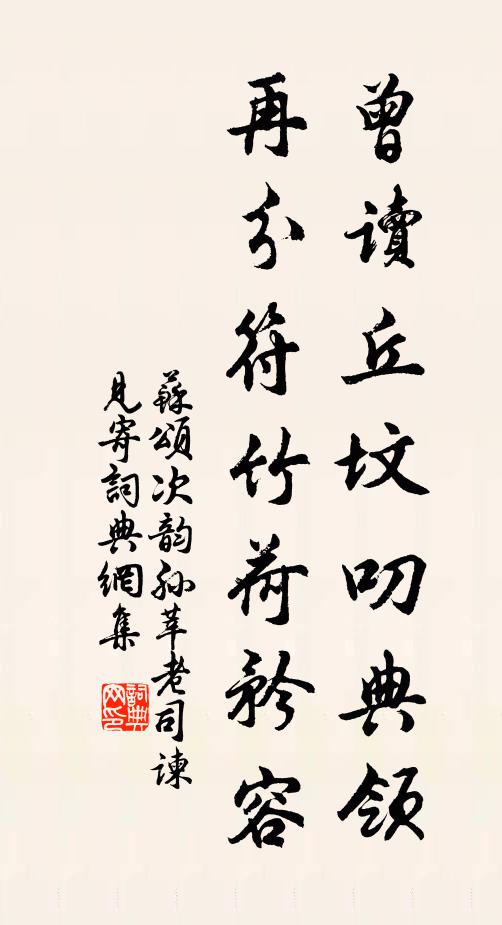 曾讀丘墳叨典領
再分符竹荷矜容
蘇頌次韵孫莘老司諫
見寄詞典網集
詞典网印